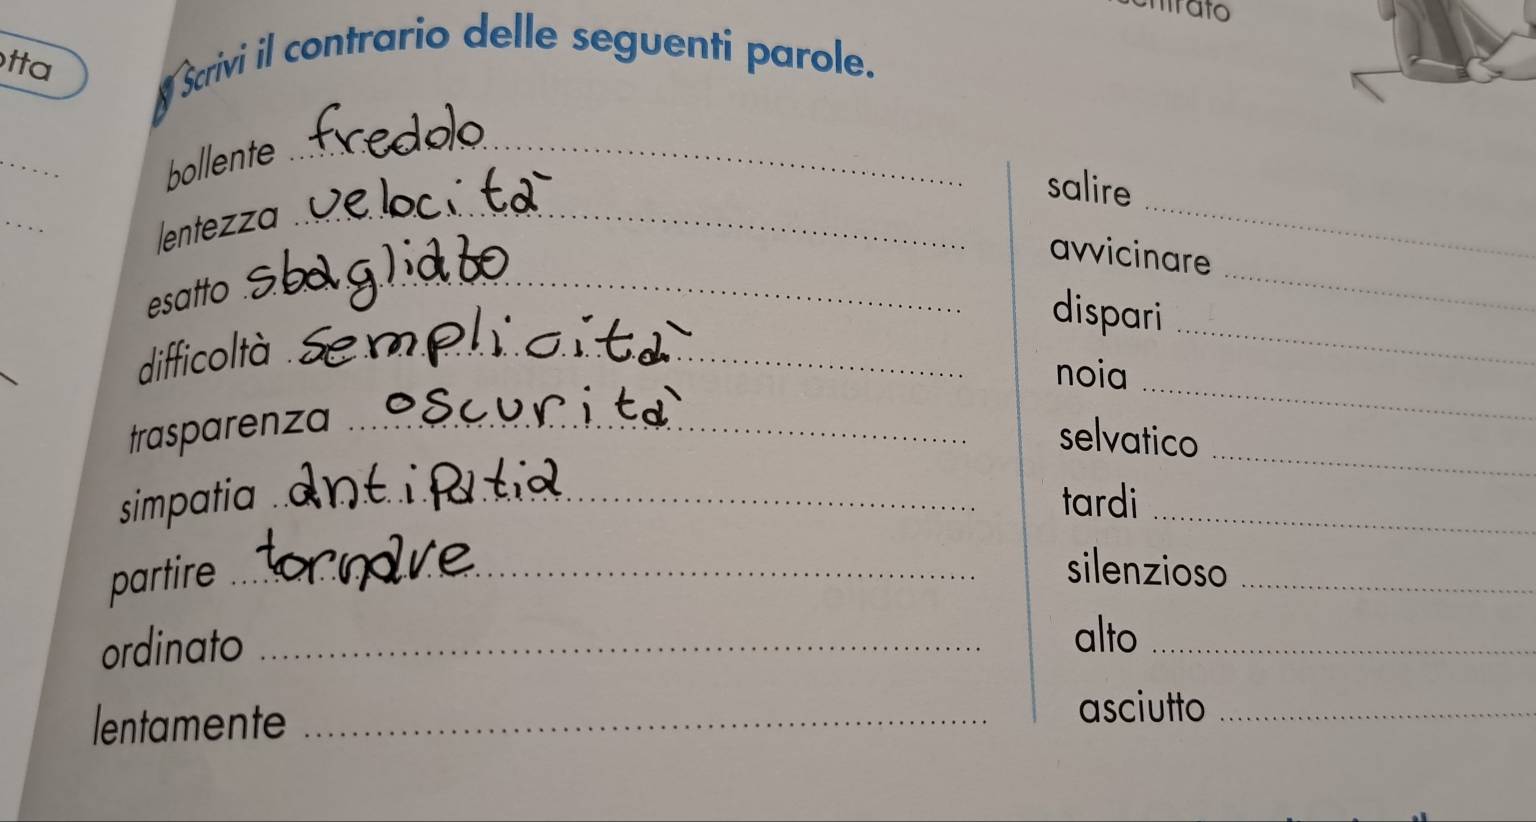 8 Scrivi il contrario delle seguenti parole.
bollente freddo
lentezza velocità
esatto sbagliato
difficoltà semplicità
trasparenza oscurità
simpatia antipatia
partire tornare
ordinato
lentamente
salire
avvicinare
dispari
noia
selvatico
tardi
silenzioso
alto
asciutto